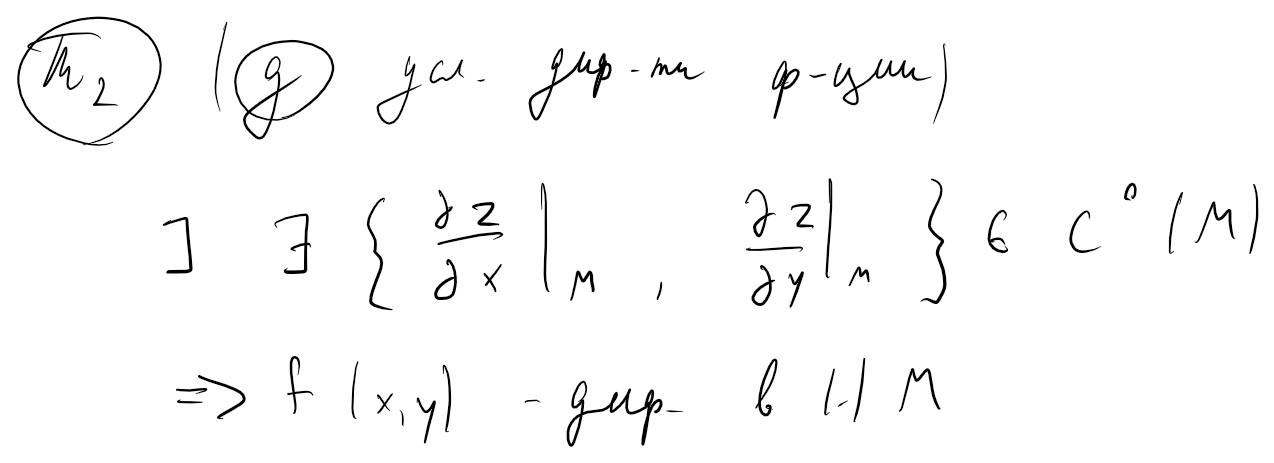 Th₂ (g усл. диф-ти ф-ции)
] ∃ { ∂z/∂x |_M , ∂z/∂y |_M } ∈ C⁰(M)
=> f(x,y) - диф- в (.) M